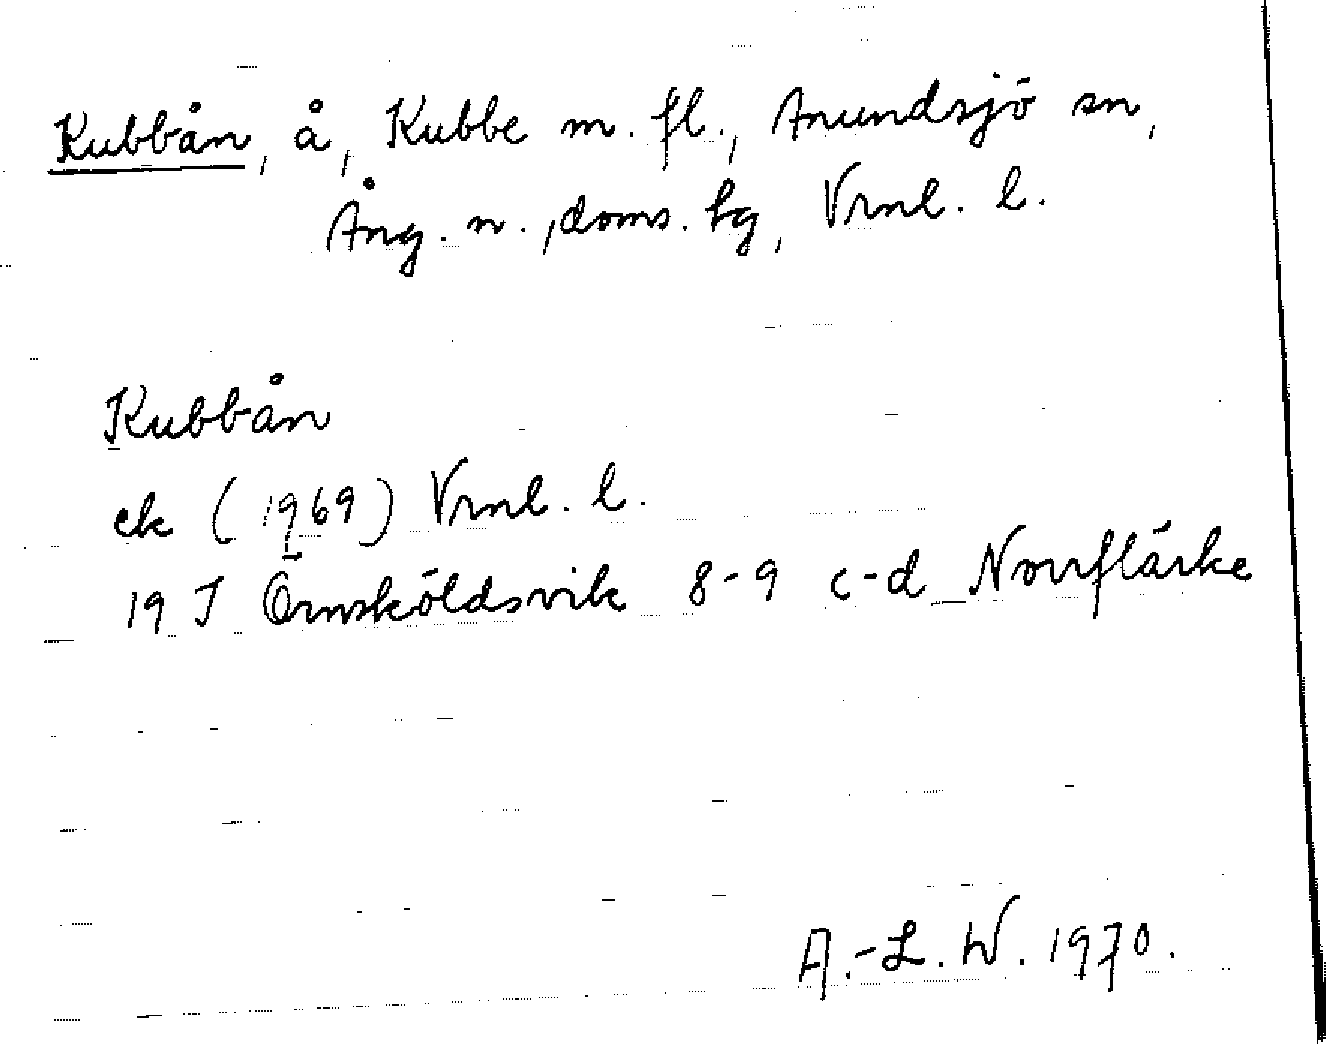 Kubbån, å, Kubbe m. fl., Anundsjö sn,
Ång. n., doms. tg, Vrnl. l.
Kubbån
ek (1969) Vrnl. l.
19 J Örnsköldsvik 8-9 c-d Norrflärke
A.-L. W. 1970.